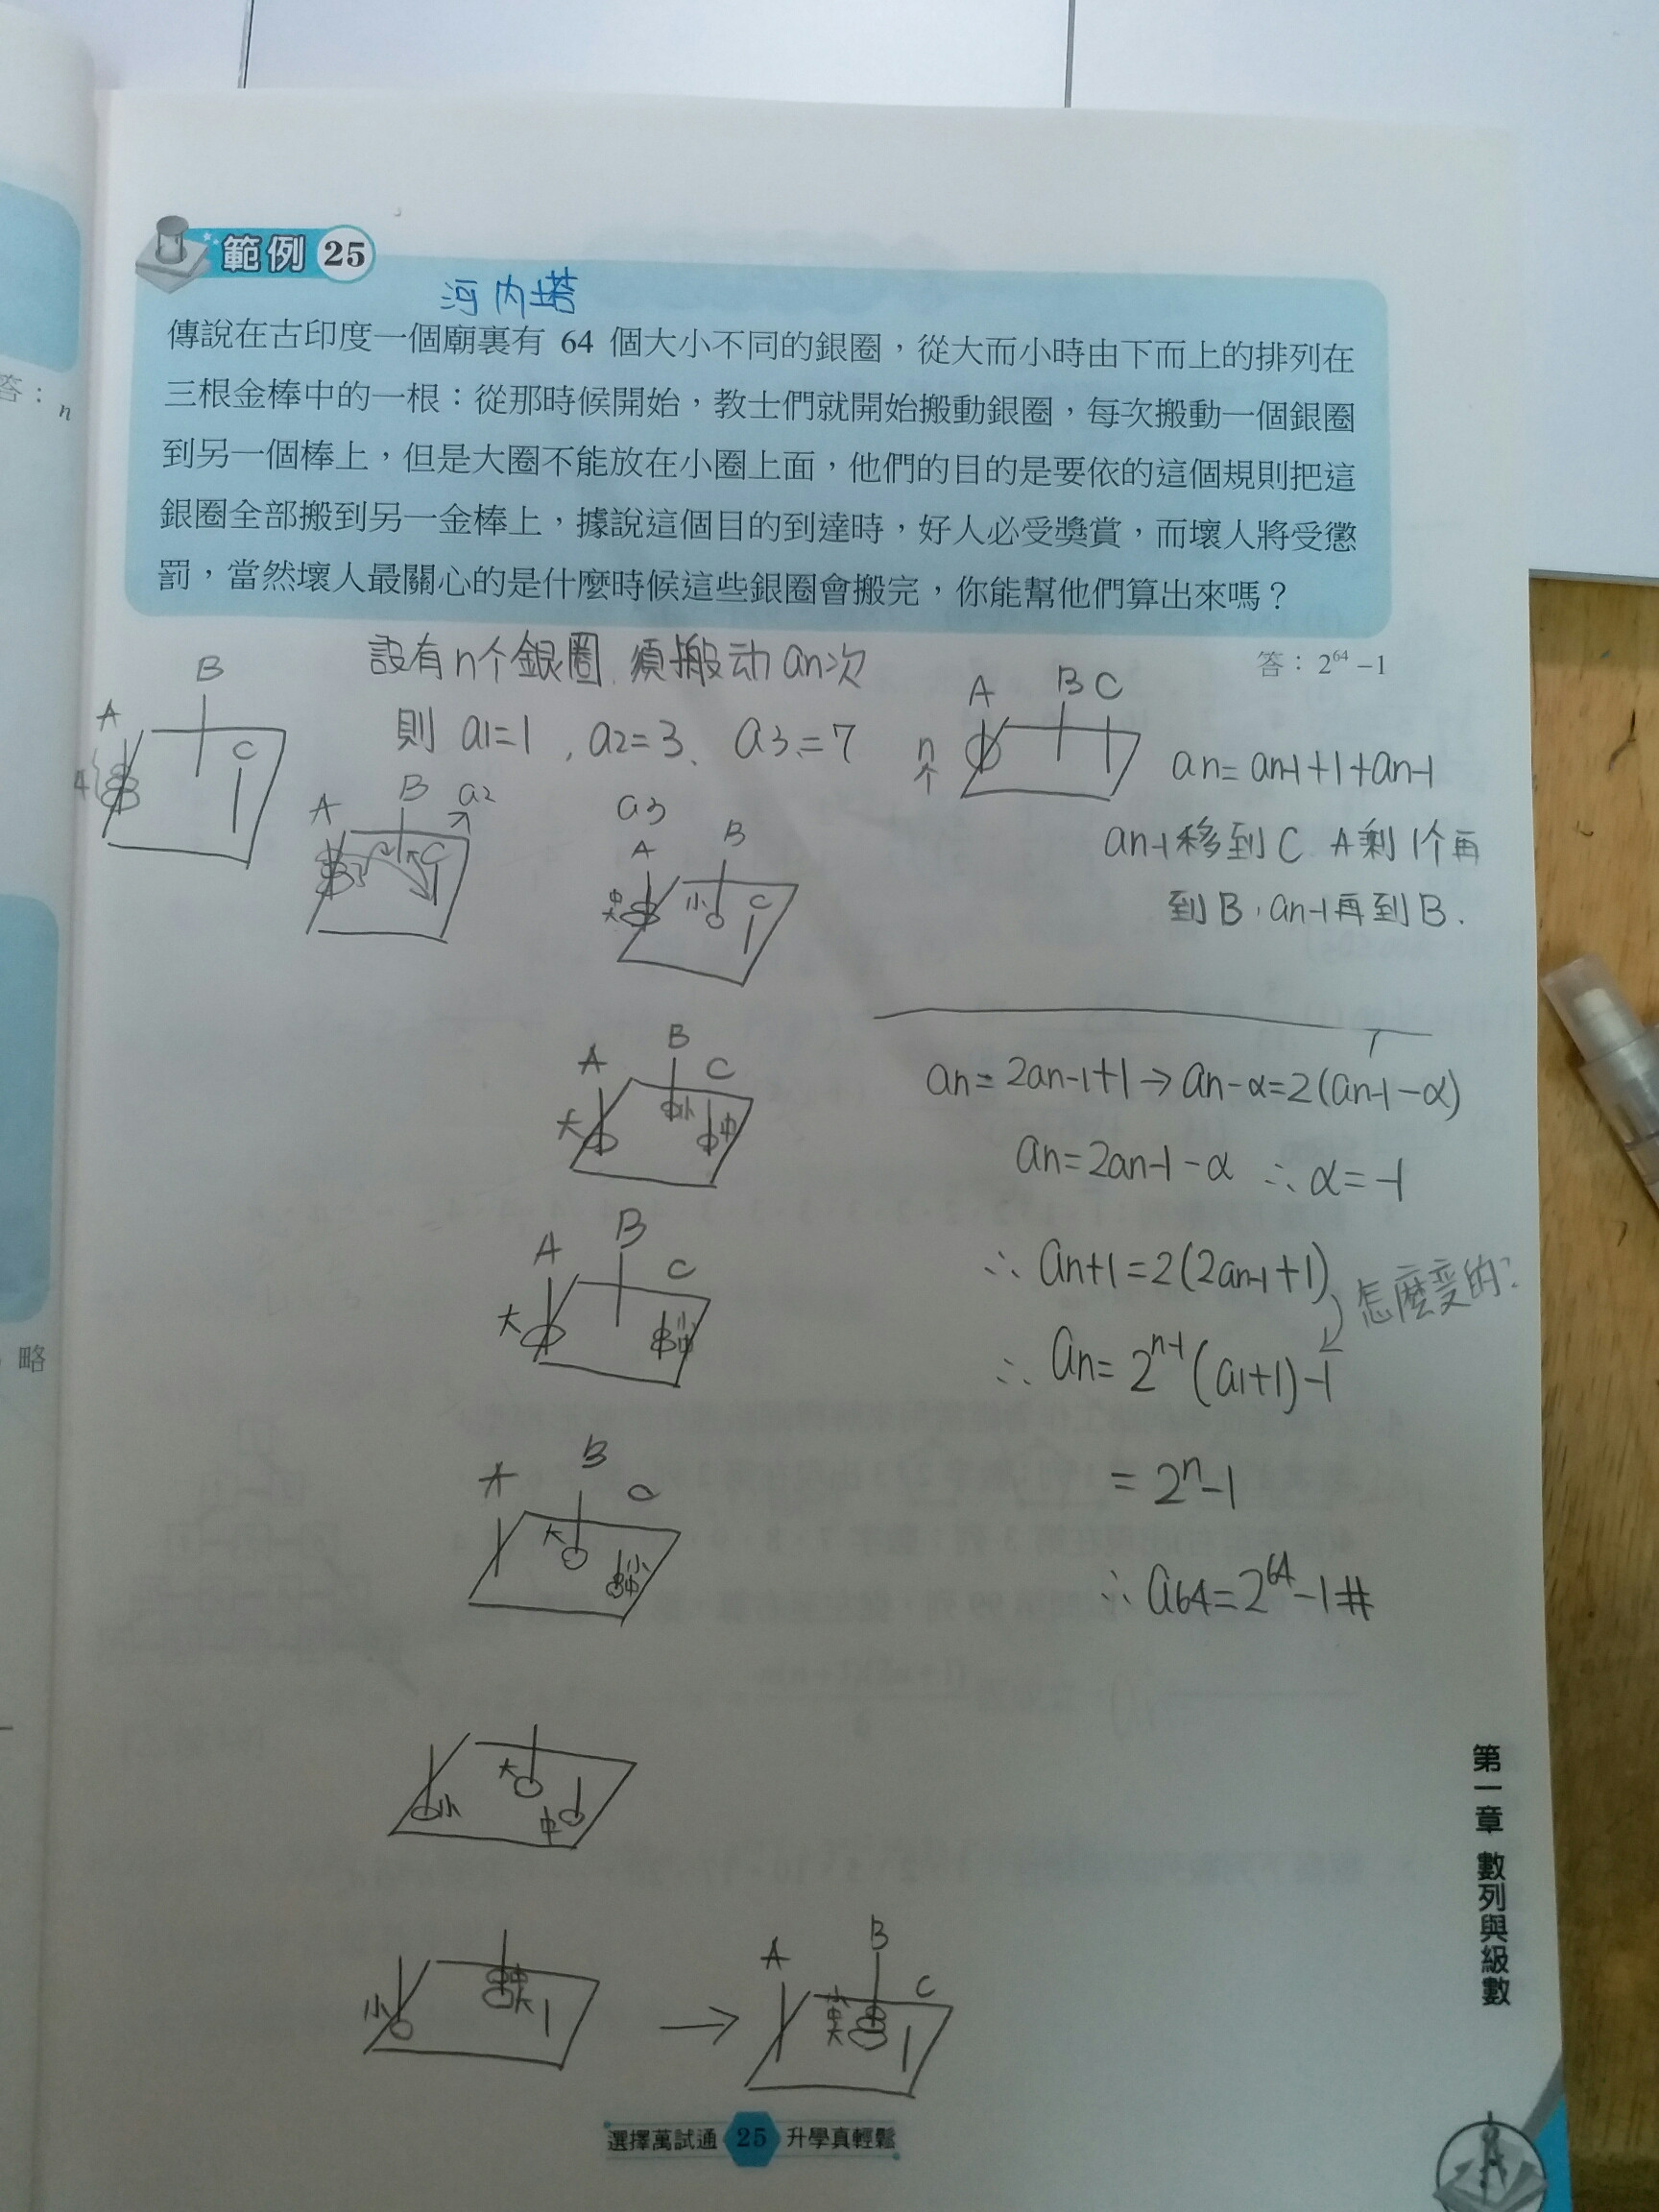 答：n
略
範例 25
河內塔
傳說在古印度一個廟裏有 64 個大小不同的銀圈，從大而小時由下而上的排列在
三根金棒中的一根：從那時候開始，教士們就開始搬動銀圈，每次搬動一個銀圈
到另一個棒上，但是大圈不能放在小圈上面，他們的目的是要依的這個規則把這
銀圈全部搬到另一金棒上，據說這個目的到達時，好人必受獎賞，而壞人將受懲
罰，當然壞人最關心的是什麼時候這些銀圈會搬完，你能幫他們算出來嗎？
答：2^64 −1
設有n个銀圈.須搬动an次
則 a1=1 , a2=3、 a3=7
A
B
C
A
B
C
a2
a3
A
B
C
中
大
小
A
B
C
大
小
中
A
B
C
大
小
中
A
B
C
大
小
中
小
大
中
小
中
大
A
B
C
小
中
大
A B C
n个
an= an-1+1+an-1
an-1移到C A剩1个再
到B，an-1再到B.
an= 2an-1+1→an-α=2(an-1-α)
an=2an-1-α ∴α=-1
∴ an+1=2(2an-1+1)
怎麼變的?
∴ an= 2^n-1 (a1+1)-1
= 2^n-1
∴ a64=2^64-1#
第一章 數列與級數
選擇萬試通 25 升學真輕鬆